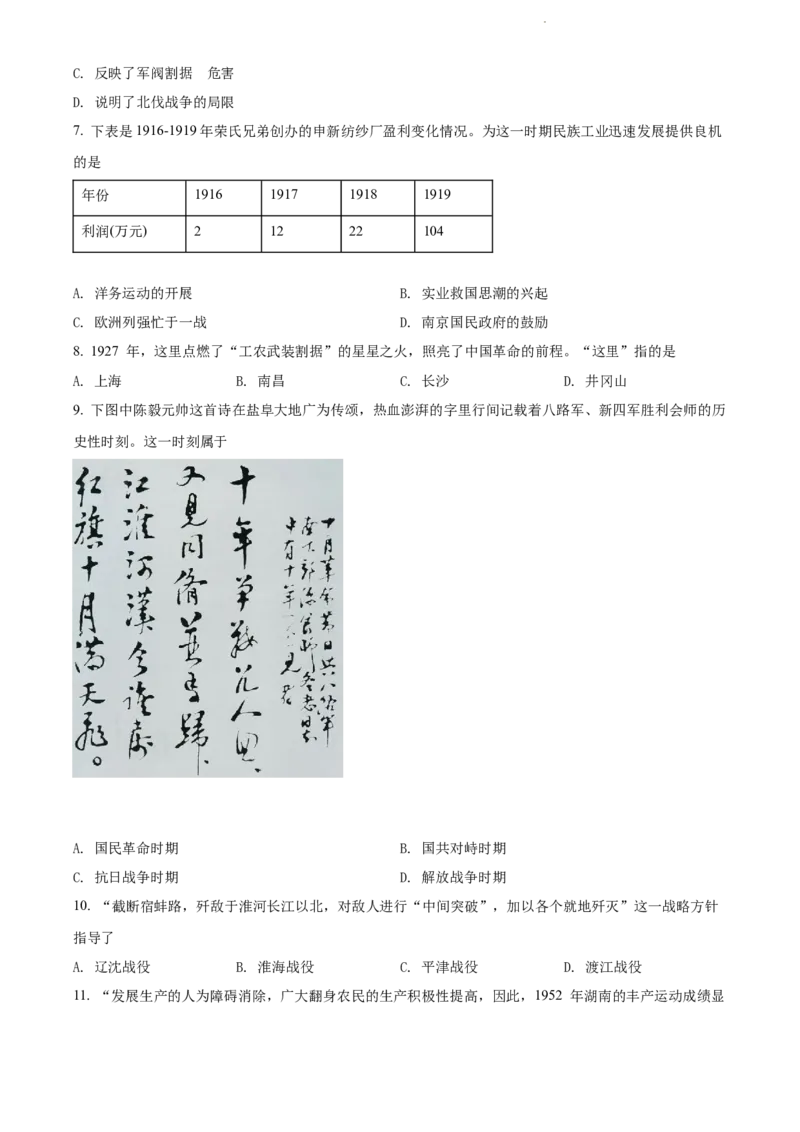 C. 反映了军阀割据 危害
D. 说明了北伐战争的局限
7. 下表是1916-1919年荣氏兄弟创办的申新纺纱厂盈利变化情况。为这一时期民族工业迅速发展提供良机
的是
年份 1916 1917 1918 1919
利润(万元) 2 12 22 104
A. 洋务运动的开展 B. 实业救国思潮的兴起
C. 欧洲列强忙于一战 D. 南京国民政府的鼓励
8. 1927 年，这里点燃了“工农武装割据”的星星之火，照亮了中国革命的前程。“这里”指的是
A. 上海 B. 南昌 C. 长沙 D. 井冈山
9. 下图中陈毅元帅这首诗在盐阜大地广为传颂，热血澎湃的字里行间记载着八路军、新四军胜利会师的历
史性时刻。这一时刻属于
十年
十年征
人回、
又見同儕並馬歸、
江淮河漢今誰
红旗十月滿天飛。
A. 国民革命时期 B. 国共对峙时期
C. 抗日战争时期 D. 解放战争时期
10. “截断宿蚌路，歼敌于淮河长江以北，对敌人进行“中间突破”，加以各个就地歼灭”这一战略方针
指导了
A. 辽沈战役 B. 淮海战役 C. 平津战役 D. 渡江战役
11. “发展生产的人为障碍消除，广大翻身农民的生产积极性提高，因此，1952 年湖南的丰产运动成绩显